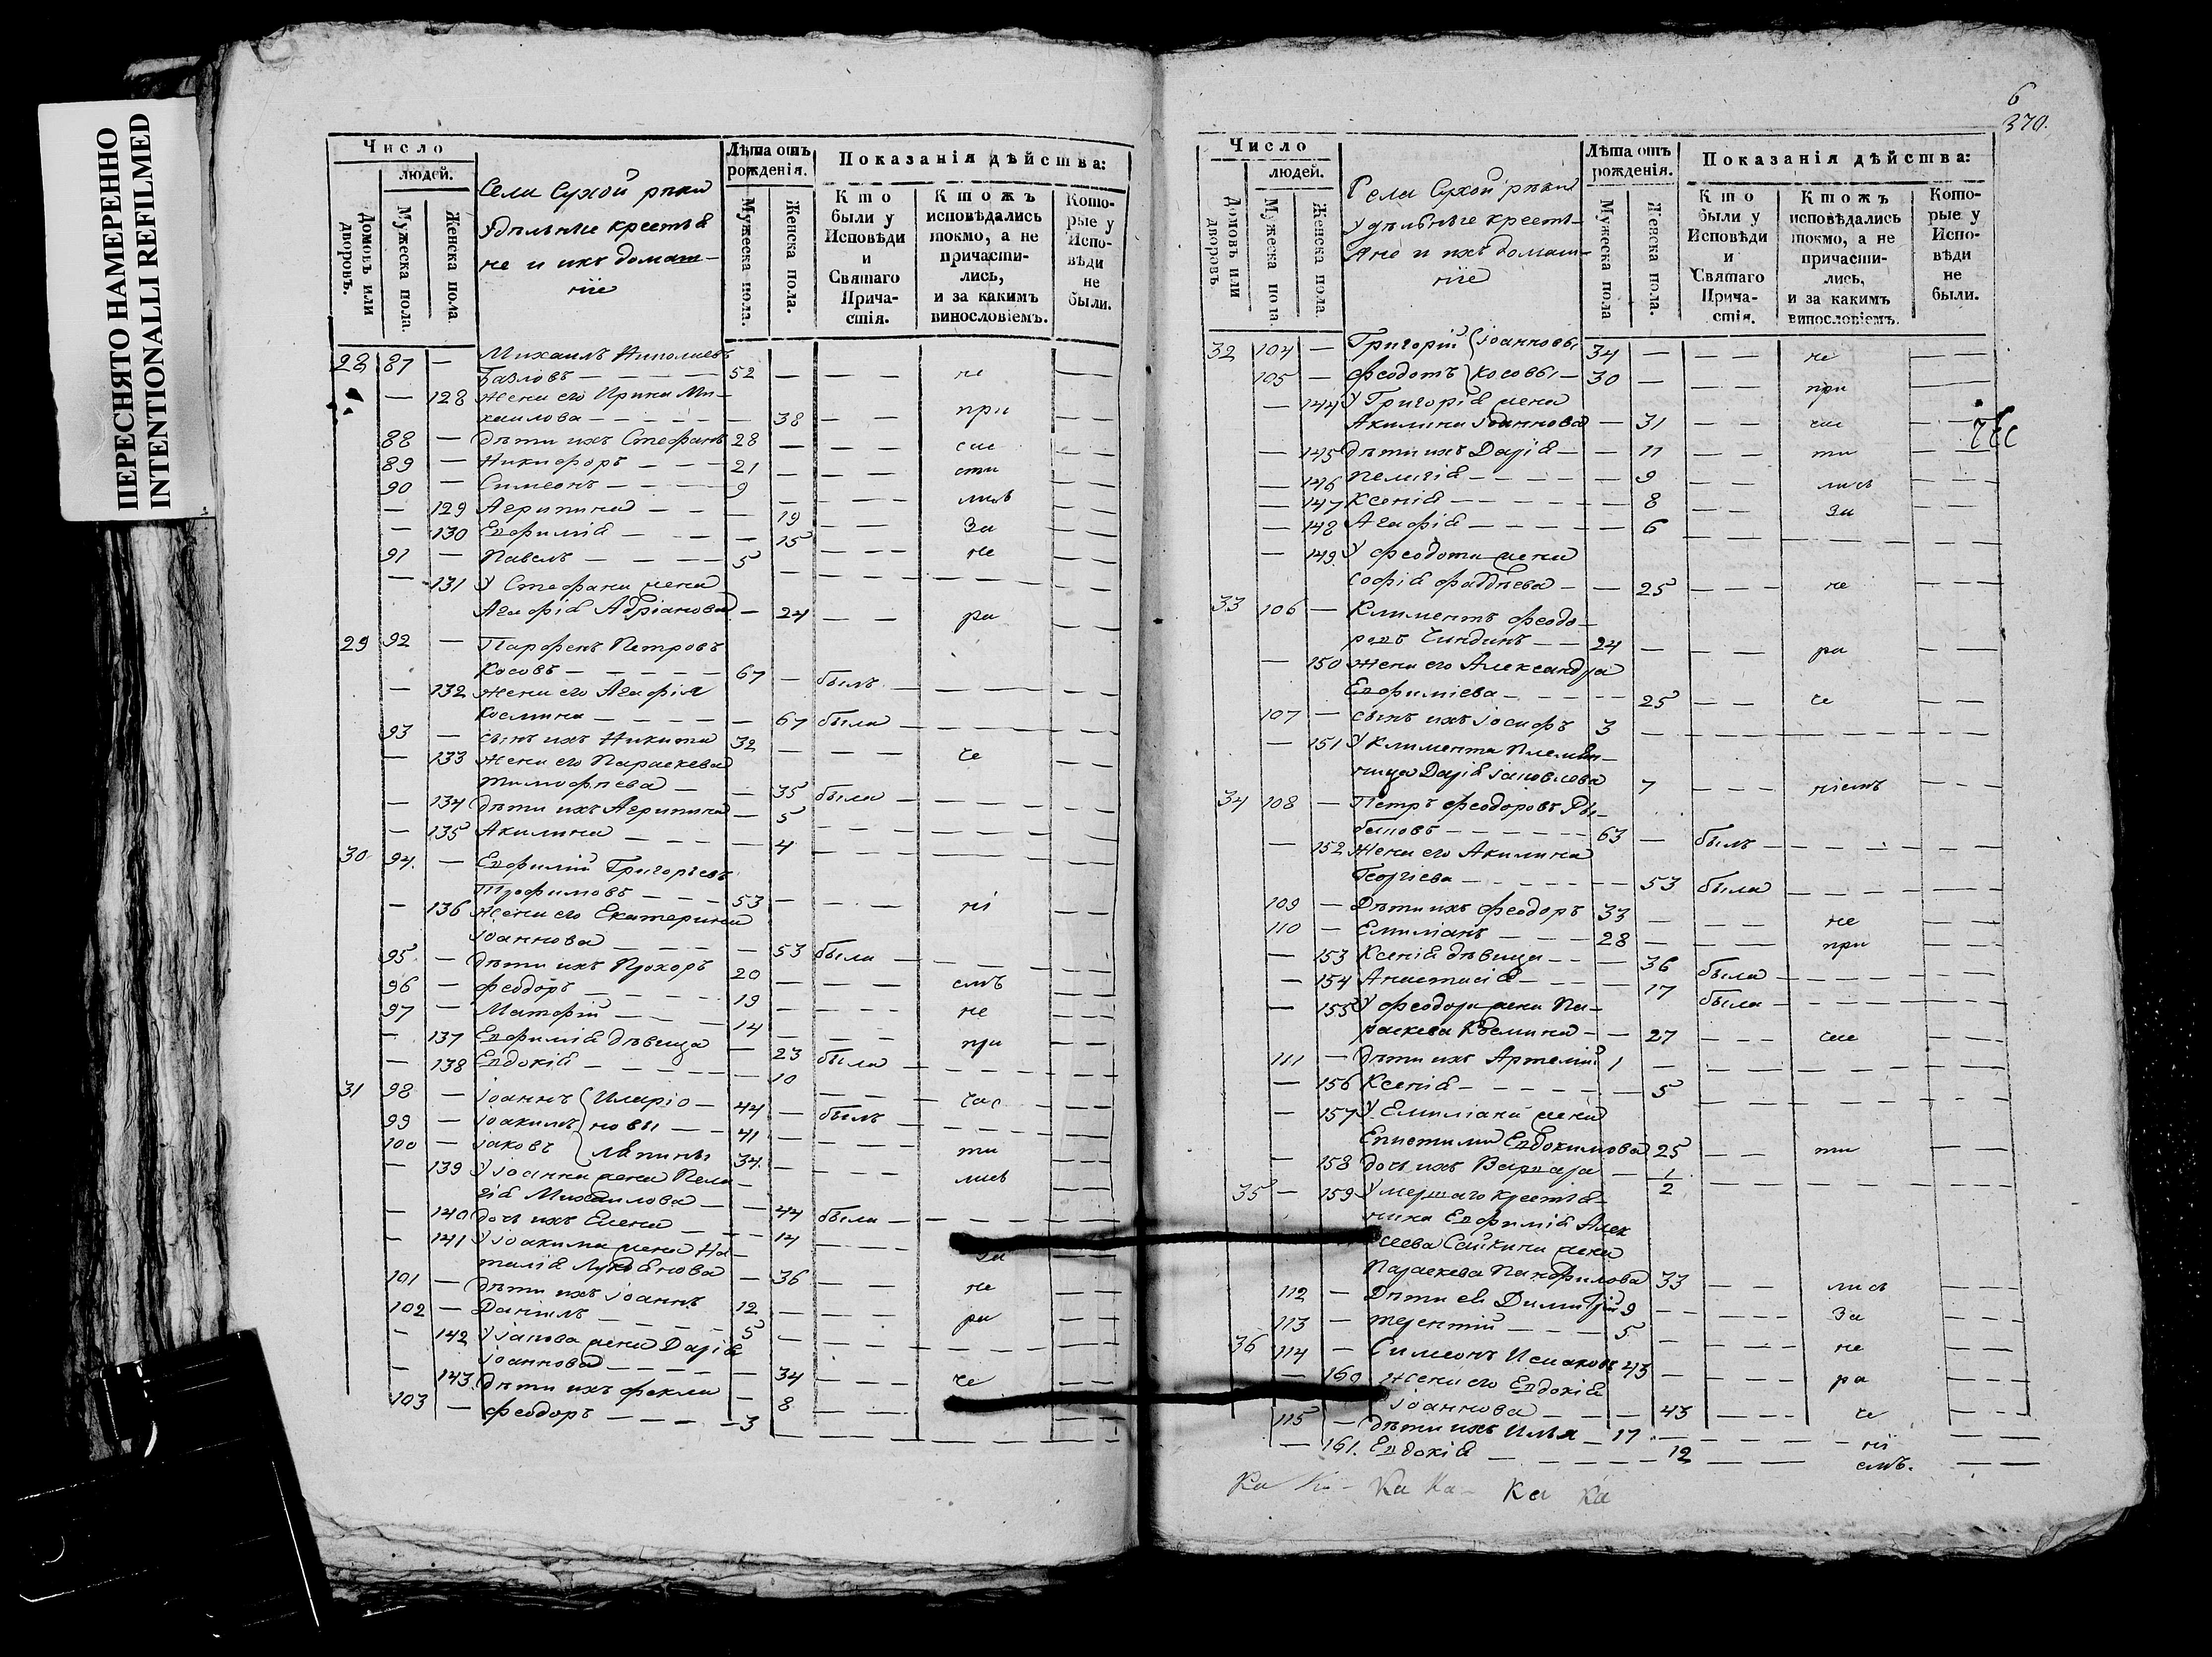 ПЕРЕСНЯТО НАМЕРЕННО
INTENTIONALLI REFILMED
Число
людей.
Домовъ или дворовъ.
Мужеска пола.
Женска пола.
Села Сухой рѣки
Удѣльные крестья
не и ихъ домаш-
ніе
Лѣта отъ рожденія.
Мужеска пола.
Женска пола.
Показанія дѣйства:
Кто были у Исповѣди и Святаго Прича-стія.
Ктожъ исповѣдались токмо, а не причасти-лись, и за какимъ винословіемъ.
Кото-рые у Испо-вѣди не были.
28 87 — Михаилъ Николаевъ
52 — — — не —
— 128 жена его Ирина Ми-
хаилова — — 38 — — при —
88 — дѣти ихъ Стефанъ 28 — — — —
89 — Никифоръ — — 21 — — — сти —
90 — Симеонъ — — 9 — — — лись —
— 129 Агрипина — — 19 — — За —
— 130 Евфимія — — 15 — — не —
91 — Павелъ — — 5 — — — — —
— 131 У Стефана жена
Агафія Адріанова — 24 — — ра —
29 92 — Парфенъ Петровъ
Косовъ — — 67 — былъ — —
— 132 жена его Агафія
Космина — — 67 была — —
93 — сынъ ихъ Никита 32 — — — че —
— 133 жена его Параскева
Тимофѣева — — 35 была — —
— 134 дѣти ихъ Агрипина — 5 — — —
— 135 Акилина — — 4 — — —
30 94. — Евфимій Григорьевъ
Трофимовъ — — 53 — — — ні —
— 136 жена его Екатерина
Іоаннова — — 53 была — —
95 — дѣти ихъ Прохоръ 20 — — — емъ —
96 — Феодоръ — — 19 — — — не —
97 — Матфій — — 14 — — — при —
— 137 Евфимія дѣвица — 23 была — —
— 138 Евдокія — — 10 — — —
31 98 — Іоаннъ Иларіо- 44 — былъ — час —
99 — Іоакимъ новы — 41 — — — ти —
100 — Іаковъ Лѣпины 34. — — — лись —
— 139 У Іоанна жена Пела-
гія Михаилова — — 44 была — —
— 140 дочь ихъ Елена — — 14 — — За —
— 141 У Іоакима жена На-
талія Лукіянова — 36 — — не —
101 — дѣти ихъ Іоаннъ 12 — — — ра —
102 — Даніилъ — — 5 — — — —
— 142 У Іакова жена Дарія
Іоаннова — — 34 — — че —
— 143. дѣти ихъ Фекла — 8 — — —
103 — Феодоръ — — 3 — — —
6
370.
Число
людей.
Домовъ или дворовъ
Мужеска пола.
Женска пола.
Села Сухой рѣки
Удѣльные кресть-
яне и ихъ домаш-
ніе
Лѣта отъ рожденія.
Мужеска пола
Женска пола.
Показанія дѣйства:
Кто были у Исповѣди и Святаго Прича-стія.
Ктожъ исповѣдались токмо, а не причасти-лись, и за какимъ винословіемъ.
Кото-рые у Испо-вѣди не были.
32 104 — Григорій Іоанновы 34 — — — не —
105 — Феодотъ Косовы — 30 — — — при —
— 144 У Григорія жена
Акилина Іоаннова — 31 — — час —
— 145 дѣти ихъ Дарія — — 11 — — ти —
— 146 Пелагія — — 9 — — лись —
— 147 Ксенія — — 8 — — За —
— 148 Агафія — — 6 — — —
— 149. У Феодота жена
Софія Фаддѣева — — 25 — — не —
33 106 — Климентъ Феодо-
ровъ Чиндинъ — — 24 — — — ра —
— 150 жена его Александра
Евфиміева — — 25 — — че —
107 — сынъ ихъ Іосифъ 3 — — — —
— 151 У Климента племян-
ница Дарія Іаковлева 7 — — ніемъ —
34 108 — Петръ Феодоровъ Ры-
баковъ — — 63 — былъ — —
— 152 жена его Акилина
Георгіева — — 53 была — —
109 — Дѣти ихъ Феодоръ 33 — — — не —
110 — Емиліанъ — — 28 — — — при —
— 153 Ксенія дѣвица — — 36 была — —
— 154 Анастасія — — 17 была — —
— 155 У Феодора жена Па-
раскева Космина — — 27 — — час —
111 — дѣти ихъ Артемій 1 — — — —
— 156 Ксенія — — 5 — — —
— 157 У Емиліана жена
Епистимія Евдокимова 25 — — ти —
— 158 дочь ихъ Варвара — 1/2 — — —
35 — 159 Умершаго крестья-
нина Евфимія Алек
сеева Сайкина жена
Параскева Панфилова 33 — — лись —
112 — Дѣти ея Димитрій 9 — — — За —
113 — Терентій — — 5 — — — не —
36 114 — Симеонъ Исаковъ 43 — — — ра —
— 160 жена его Евдокія
Іоаннова — — 43 — — че —
115 — дѣти ихъ Илья — 17 — — — ні —
— 161. Евдокія — — 12 — — емъ. —
Ка Ка Ка Ка Ка